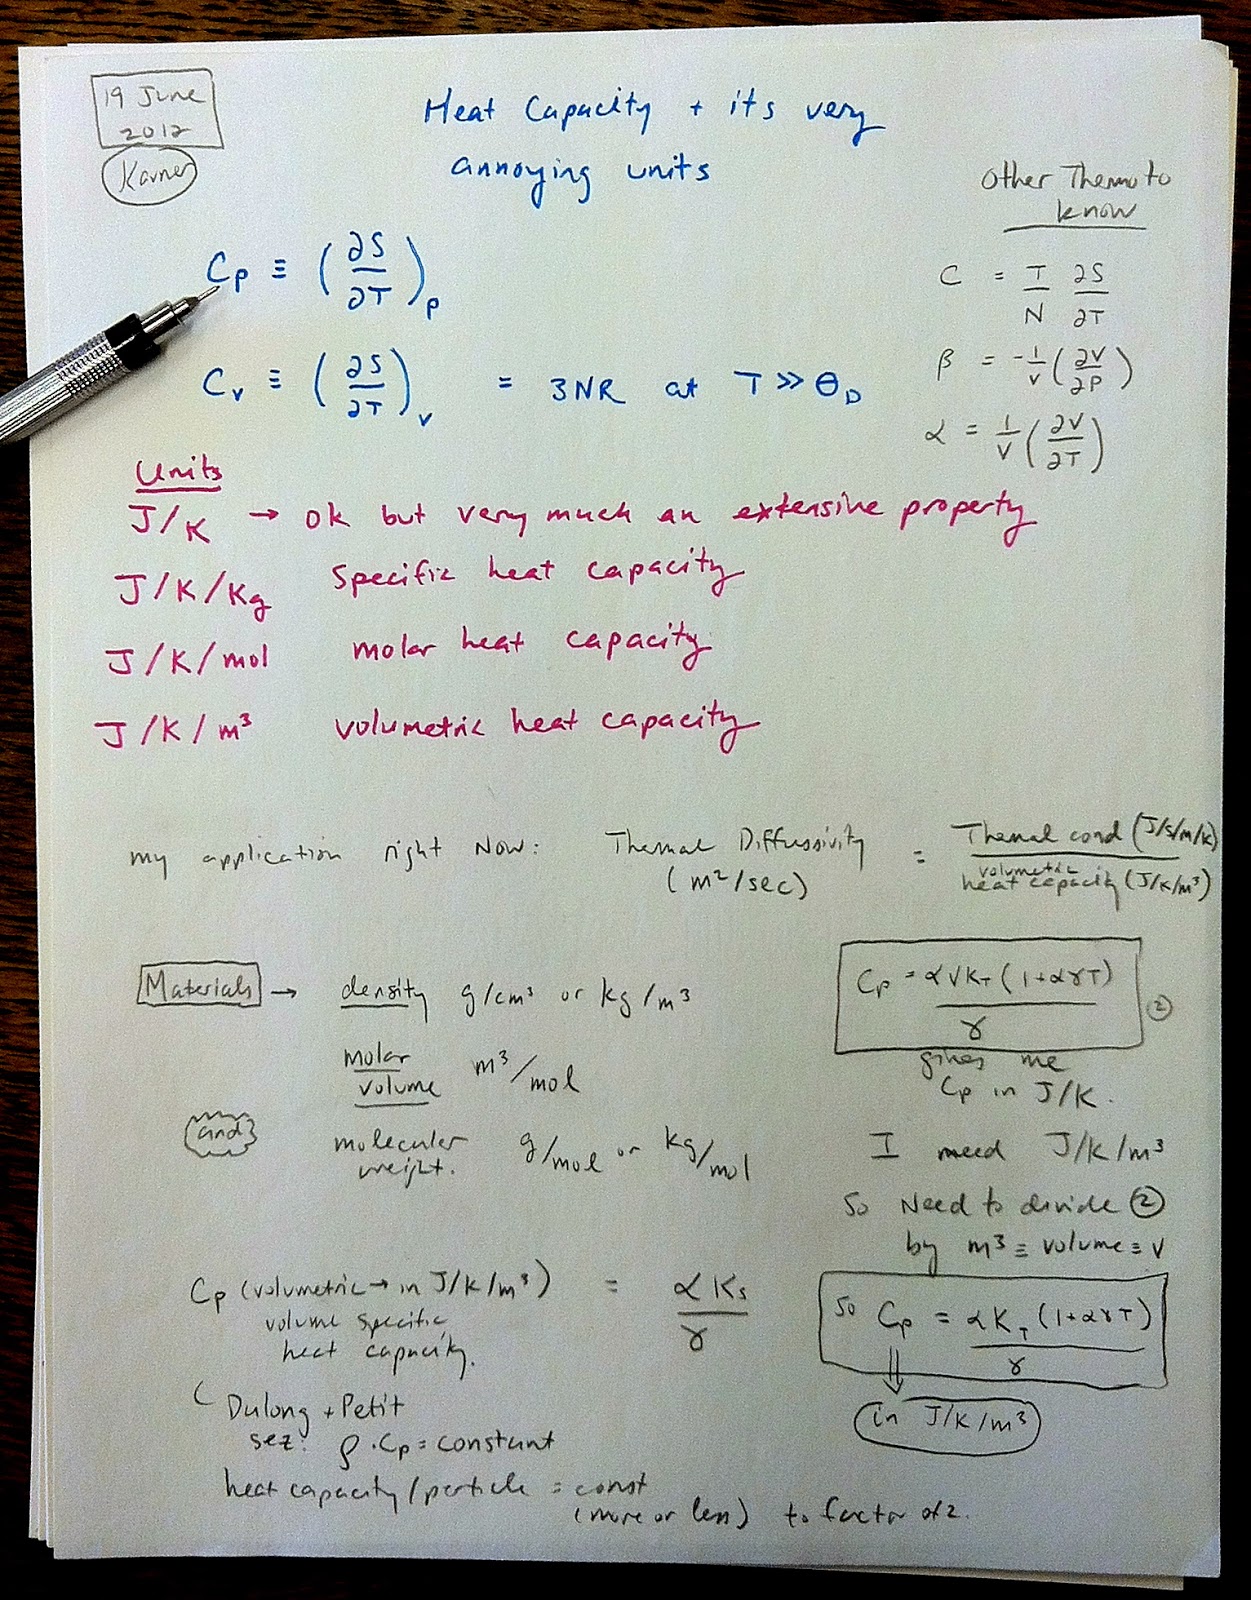 19 June
2012
Karner
Heat Capacity + its very
annoying units
Other Thermo to
know
Cp ≡ (∂S/∂T)p
C = T/N ∂S/∂T
β = -1/V (∂V/∂P)
Cv ≡ (∂S/∂T)v = 3NR at T >> ΘD
α = 1/V (∂V/∂T)
Units
J/K → ok but very much an extensive property
J/K/Kg specific heat capacity
J/K/mol molar heat capacity
J/K/m³ volumetric heat capacity
my application right now: Thermal Diffussivity = Thermal cond (J/s/m/K)
(m²/sec) volumetric heat capacity (J/K/m³)
Materials → density g/cm³ or kg/m³
molar
volume m³/mol
and
molecular
weight. g/mol or kg/mol
Cp = αVK_T (1+αγT)/γ ②
gives me
Cp in J/K.
I need J/K/m³
So Need to divide ②
by m³ ≡ volume ≡ V
Cp (volumetric → in J/K/m³) = αKs/γ
volume specific
heat capacity.
So Cp = αK_T (1+αγT)/γ
⇓
in J/K/m³
Dulong + Petit
sez: ρ·Cp = constant
heat capacity/particle = const
(more or less) to factor of 2.